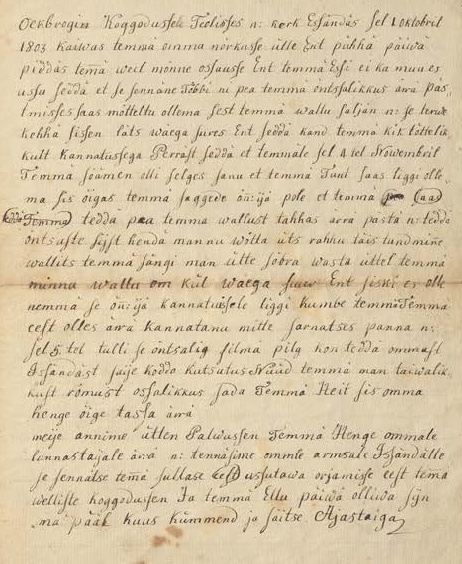 Oekbrogin Koggodussele Teolisses n: kerk Essändäs sel 1 oktobril
1803 kaiwas temmä omma nörkusse ülle Ent pähhä päiwä
piddäs tem̄ä weil mönne ossausse Ent temmä Essi ei ka muu es
ussu seddä et se sennäne Többi ni pea temmä öntsalikkus ärrä päs
tmisses saas mötteltu ollema sest temmä wallu säljän n: se terwe
kehhä sissen läts waega sures Ent seddä kand temmä kik löttelik
kult Kannatussega Perräst seddä et temmäle sel 4 tel Nowembril
Temmä söämen olli selges sanu et temmä Tuni saas liggi olle
ma sis öigas temmä saggede öm̄: ijä pole et temmä (saa)
Temma) teddä pea temmä wallust tahhas ärrä pästä n: teddä
öntsuste sisst hendä mannu wötta üts rahhu täis tundmine
wallits temmä sängi man ütte söbra wasta üttel temmä
minnu wallu om kül waega suur Ent siski es olle
nemmä se öm̄: ijä kannatuissele liggi kumbe temmä Temmä
eest olles ärrä kannatanu mitte sarnatses panna n:
sel 5 tel tulli se öntsalig silmä pilg kon teddä ommast
Issändäst suije koddo kutsutus Nüüd temmä man täiwalik
kust römust ossalikkus sada Temmä Heit sis omma
henge öige tassa ärrä
meije annime ütlen Palwussen Temmä Henge ommale
lunnastajale ärrä n: tennäsime ommte armsale Issändälle
se sennätse tem̄ä sullase eest ussutawa orjamisse eest temä
welliste koggodussen Ja temmä Ellu päiwä olliwa siin
ma pääl kuus kümmend ja säitse Ajastaiga